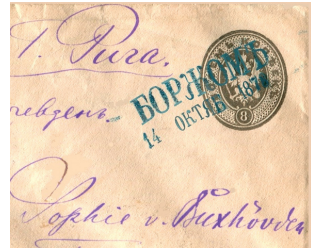 г. Рига.
БОРЖОМЪ
14 ОКТЯБ 187
8
Sophie v. Buxhövden